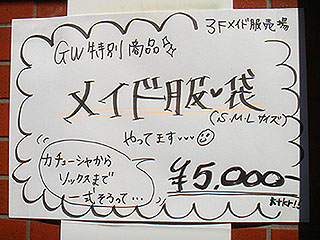 3Fメイド服売場
GW特別商品
メイド服♥袋
(S・M・Lサイズ)
やってます…
カチューシャから
ソックスまで
一式そろって…
¥5,000-
おトク!!